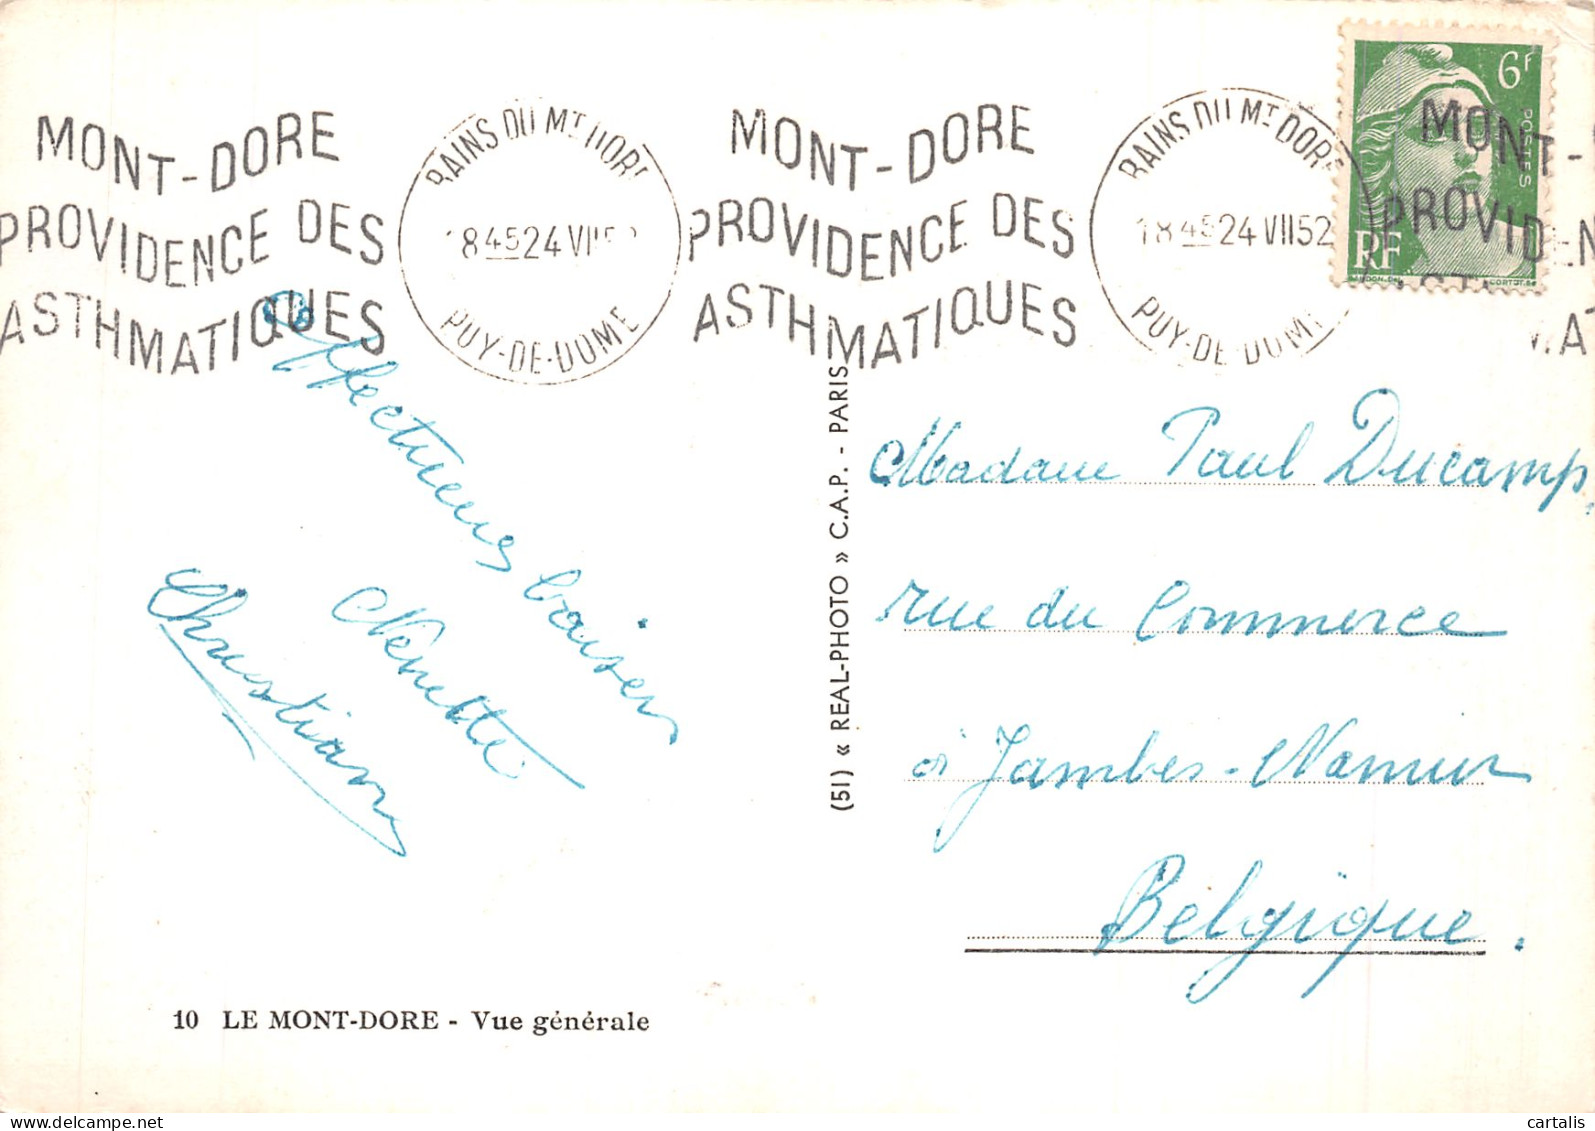 MONT-DORE
PROVIDENCE DES
ASTHMATIQUES
BAINS DU MT DORE
18 45 24 VII 52
PUY-DE-DOME
MONT-DORE
PROVIDENCE DES
ASTHMATIQUES
BAINS DU MT DORE
18 45 24 VII 52
PUY-DE-DOME
6F
POSTES
RF
GANDON-DEL
CORTOT.SC
MONT-
PROVIDEN
Affectueux baisers
Nénette
Christiane
(51) « REAL-PHOTO » C.A.P. - PARIS
Madame Paul Ducamp,
rue du Commerce
à Jambes-Namur
Belgique.
10 LE MONT-DORE - Vue générale
cartalis